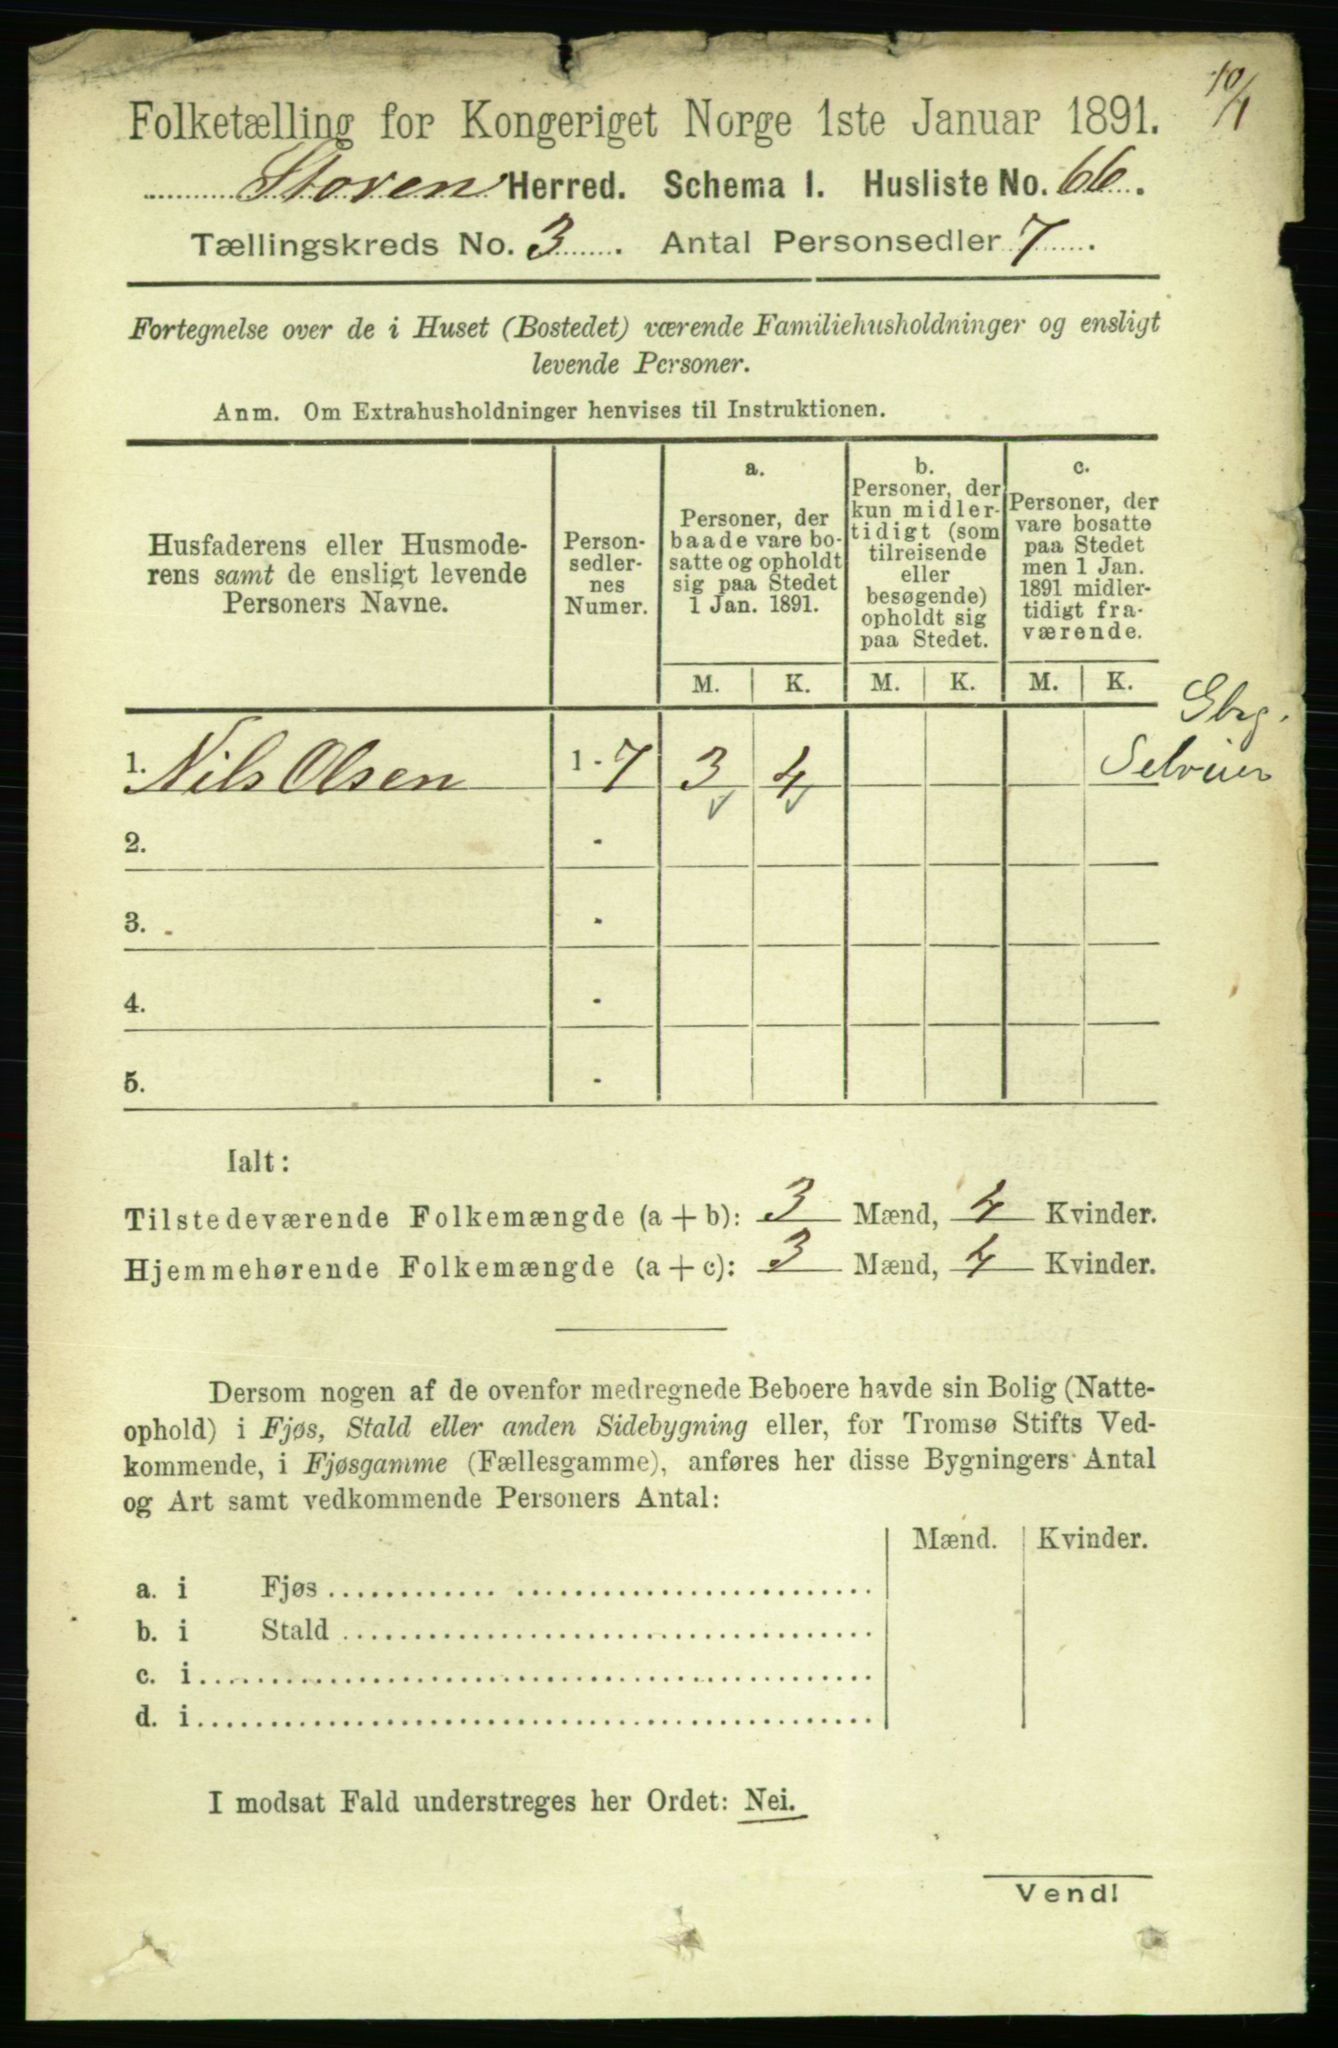 10/1
Folketælling for Kongeriget Norge 1ste Januar 1891.
Storen Herred. Schema I. Husliste No. 66.
Tællingskreds No. 3. Antal Personsedler 7.
Fortegnelse over de i Huset (Bostedet) værende Familiehusholdninger og ensligt
levende Personer.
Anm. Om Extrahusholdninger henvises til Instruktionen.
Husfaderens eller Husmode-
rens samt de ensligt levende
Personers Navne.
Person-
sedler-
nes
Numer.
a.
Personer, der
baade vare bo-
satte og opholdt
sig paa Stedet
1 Jan. 1891.
b.
Personer, der
kun midler-
tidigt (som
tilreisende
eller
besøgende)
opholdt sig
paa Stedet.
c.
Personer, der
vare bosatte
paa Stedet
men 1 Jan.
1891 midler-
tidigt fra-
værende.
M. K. M. K. M. K.
Gbrg.
Selveier
1. Nils Olsen 1 - 7 3 4
2. -
3. -
4. -
5. -
Ialt:
Tilstedeværende Folkemængde (a + b): 3 Mænd, 4 Kvinder.
Hjemmehørende Folkemængde (a + c): 3 Mænd, 4 Kvinder.
Dersom nogen af de ovenfor medregnede Beboere havde sin Bolig (Natte-
ophold) i Fjøs, Stald eller anden Sidebygning eller, for Tromsø Stifts Ved-
kommende, i Fjøsgamme (Fællesgamme), anføres her disse Bygningers Antal
og Art samt vedkommende Personers Antal:
Mænd. Kvinder.
a. i Fjøs
b. i Stald
c. i
d. i
I modsat Fald understreges her Ordet: Nei.
Vend!